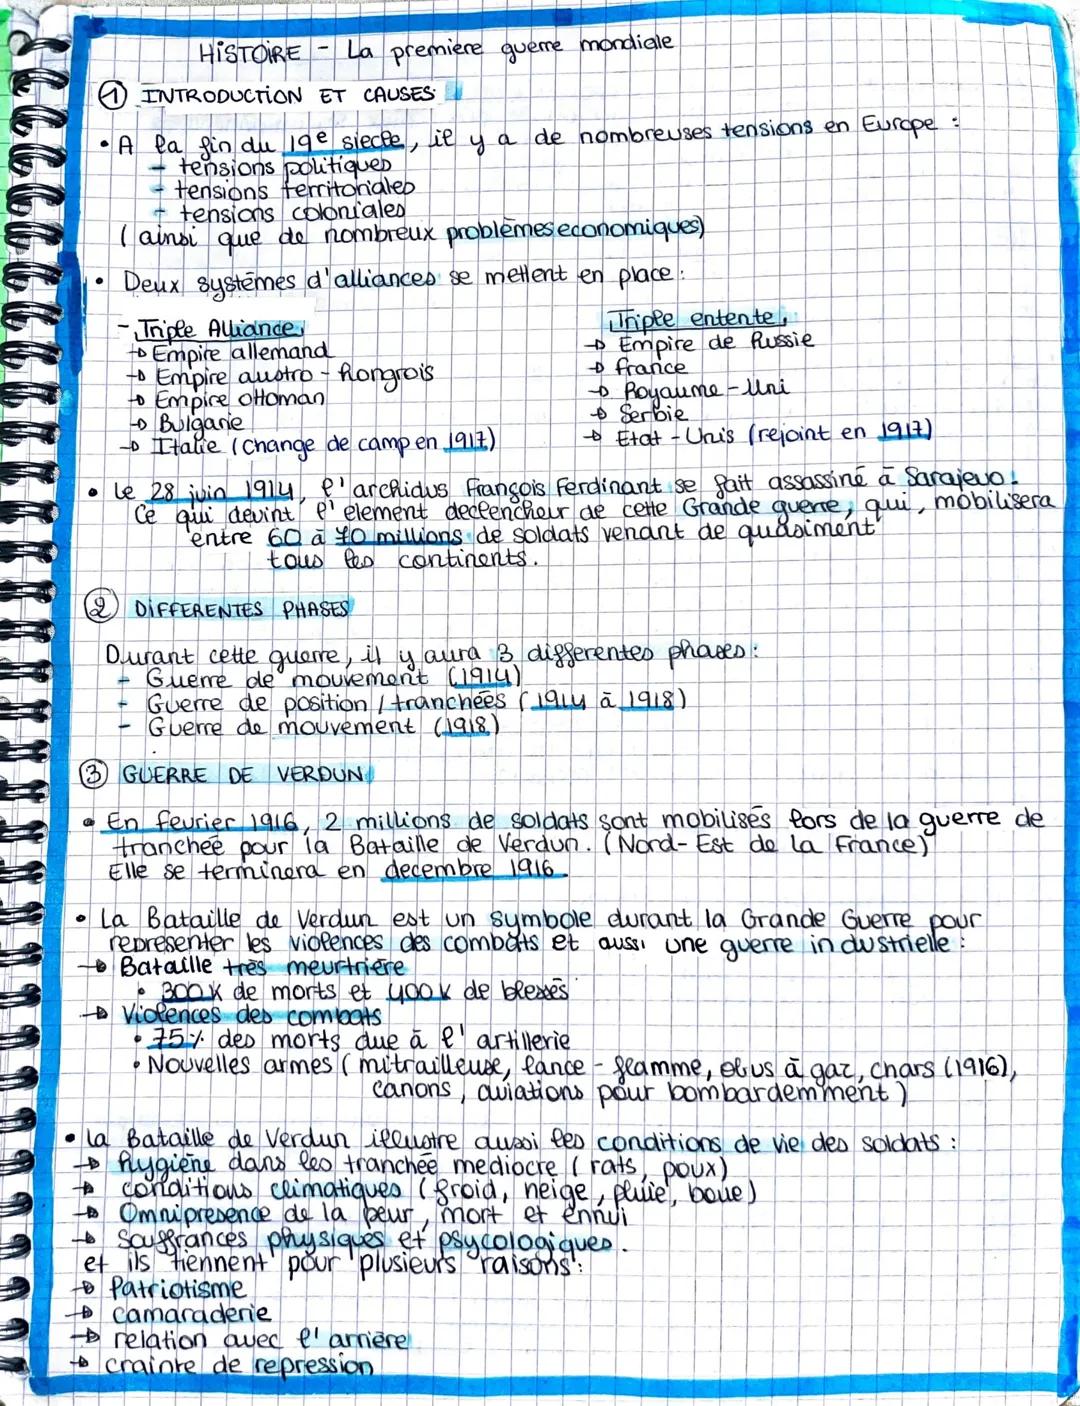 HISTOIRE - La première guerre mondiale
① INTRODUCTION ET CAUSES
• A la fin du 19e siecle, il y a de nombreuses tensions en Europe :
- tensions politiques
- tensions territoriales
- tensions coloniales
(ainsi que de nombreux problèmes economiques)
• Deux systèmes d'alliances se mettent en place :
- Triple Alliance
→ Empire allemand
→ Empire austro-hongrois
→ Empire ottoman
→ Bulgarie
→ Italie (change de camp en 1917)
Triple entente
→ Empire de Russie
→ france
→ Royaume-Uni
→ Serbie
→ Etat-Unis (rejoint en 1917)
• Le 28 juin 1914, l'archidus François Ferdinant se fait assassiné à Sarajevo.
Ce qui devint l'element declencheur de cette Grande guerre, qui, mobilisera
entre 60 à 70 millions de soldats venant de quasiment
tous les continents.
② DIFFERENTES PHASES
Durant cette guerre, il y aura 3 differentes phases :
- Guerre de mouvement (1914)
- Guerre de position / tranchées (1914 à 1918)
- Guerre de mouvement (1918)
③ GUERRE DE VERDUN
• En fevrier 1916, 2 millions de soldats sont mobilisés lors de la guerre de
tranchée pour la Bataille de Verdun. (Nord-Est de la France)
Elle se terminera en decembre 1916.
• La Bataille de Verdun est un symbole durant la Grande Guerre pour
representer les violences des combats et aussi une guerre industrielle :
→ Bataille très meurtrière
• 300k de morts et 400k de blessés
→ Violences des combats
• 75% des morts due à l'artillerie
• Nouvelles armes (mitrailleuse, lance-flamme, obus à gaz, chars (1916),
canons, aviations pour bombardemment)
• La Bataille de Verdun illustre aussi les conditions de vie des soldats :
→ hygiène dans les tranchée mediocre (rats, poux)
→ conditions climatiques (froid, neige, pluie, boue)
→ Omnipresence de la peur, mort et ennui
→ Souffrances physiques et psycologiques.
et ils tiennent pour plusieurs raisons :
→ Patriotisme
→ camaraderie
→ relation avec l'arrière
→ crainte de repression